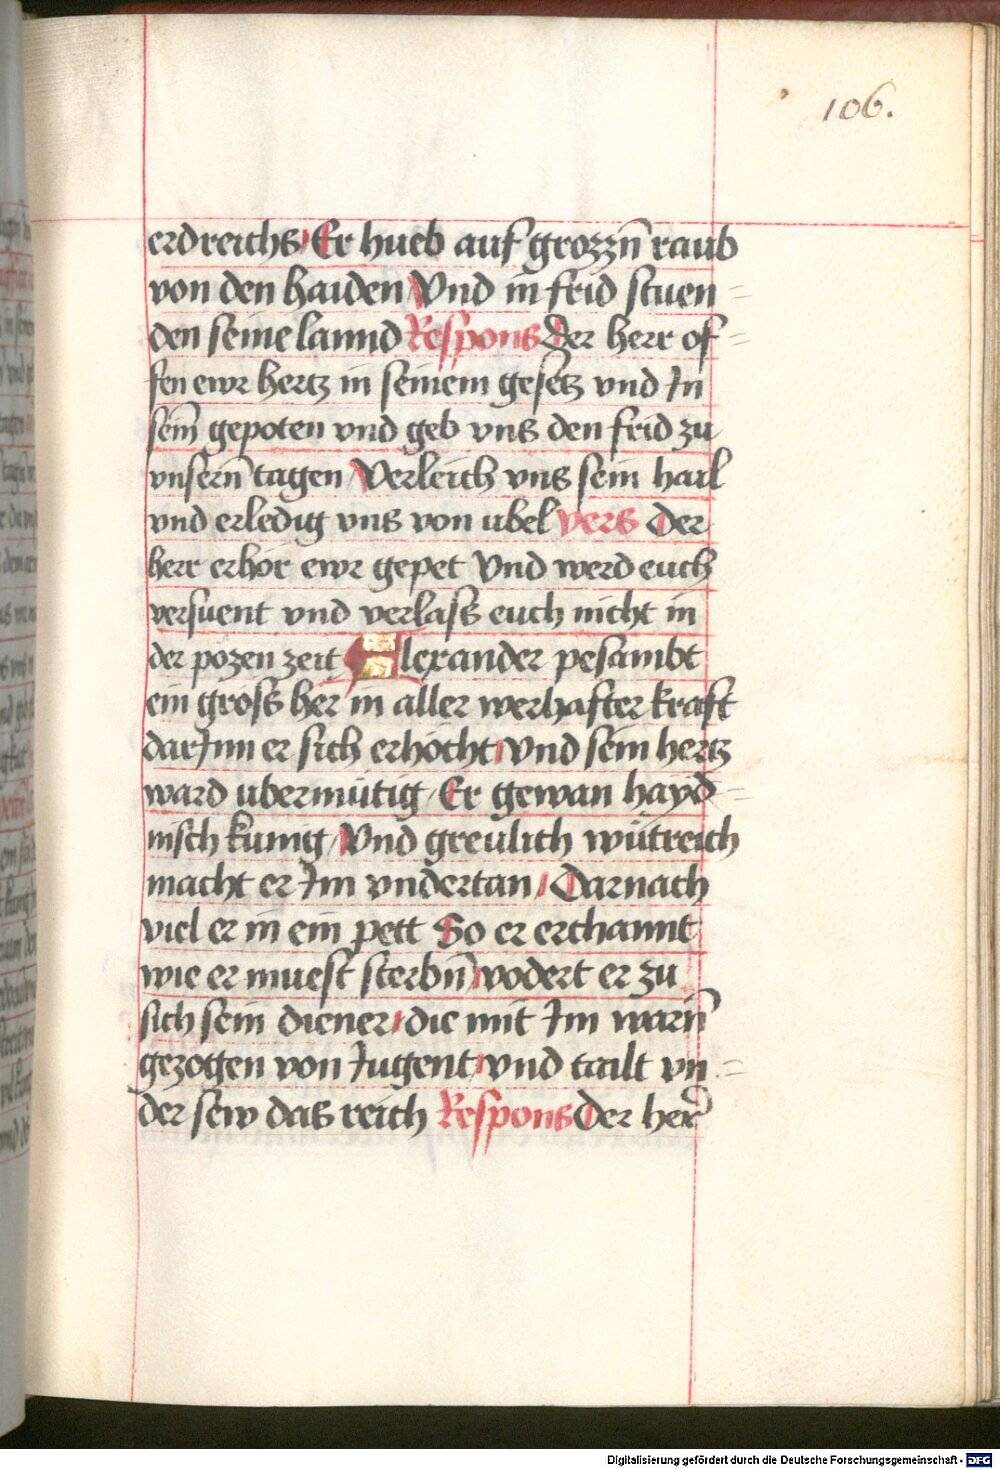 106.
erdreichs / Er hueb auf grozzn̄ raub
von den haiden / Vnd in frid stuen=
den seine lannd Respons Der herr of=
fen ewr hertz in seinem gesetz vnd Jn
sein̄ gepoten vnd geb vns den frid zu
vnsern̄ tagen / Verleich vns sein hail
vnd erledig vns von ubel vers Der
herr erhör ewr gepet Vnd werd euch
versuent vnd verlass euch nicht in
der pözen zeit Alexander pesambt
ein gross her in aller werhafter kraft
darJnn er sich erhöcht / vnd sein hertz
ward ubermütig / Er gewan hayd=
nisch kunig / Vnd greulich wütreich
macht er Jm vndertan / Darnach
viel er in ein pett So er erchannt
wie er muest sterbn̄ / vodert er zu
sich sein diener / die mit Jm warn̄
gezogen von Jugent / vnd tailt vn=
der sew das reich Respons Der herr
Digitalisierung gefördert durch die Deutsche Forschungsgemeinschaft - DFG